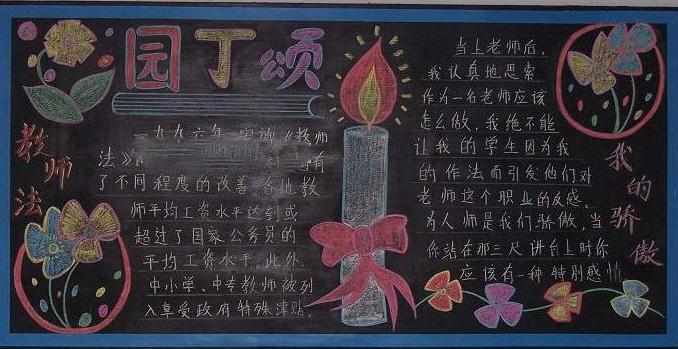 园丁颂
教师法
一九九六年 实施《教师
法》
了不同程度的改善 各地教
师平均工资水平达到或
超过了国家公务员的
平均工资水平 此外
中小学、中专教师被列
入享受政府特殊津贴。
当上老师后，
我认真地思索
作为一名老师应该
怎么做，我绝不能
让我的学生因为我
的作法而引发他们对
老师这个职业的反感。
为人师是我们骄傲，当
你站在那三尺讲台上时你
应该有一种特别感情
我的骄傲